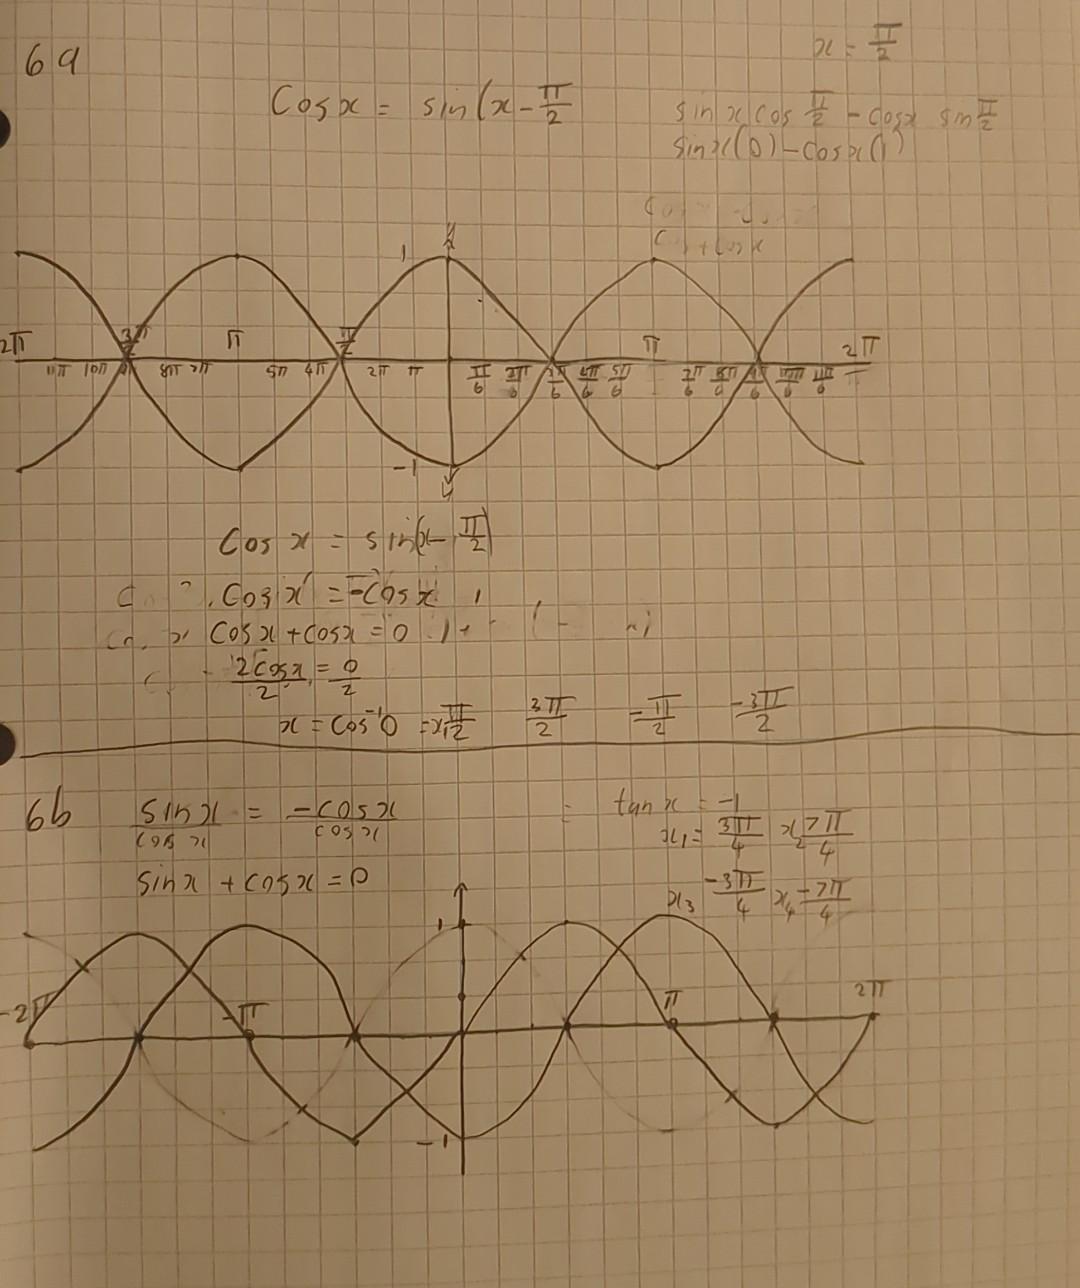 6a
x = π/2
Cos x = sin(x - π/2
sin x cos π/2 - cos x sin π/2
sin x(0) - cos x(1)
1
2π 3/2 π π π/2 π 2π
11π 10π 8π 7π 5π 4π 2π π π/6 2π/6 3π/6 4π/6 5π/6 7π/6 8π/6 9π/6 10π/6 11π/6
-1
y
Cos x = sin(x - π/2)
Cos x = -Cos x
Cos x + cos x = 0
2cos x/2 = 0/2
x = cos⁻¹0 = x₁ π/2 3π/2 -π/2 -3π/2
6b
sin x/cos x = -cos x/cos x
= tan x = -1
x₁ = 3π/4 x₂ 7π/4
sin x + cos x = 0
x₃ -3π/4 x₄ -7π/4
1
-2π -π π 2π
-1